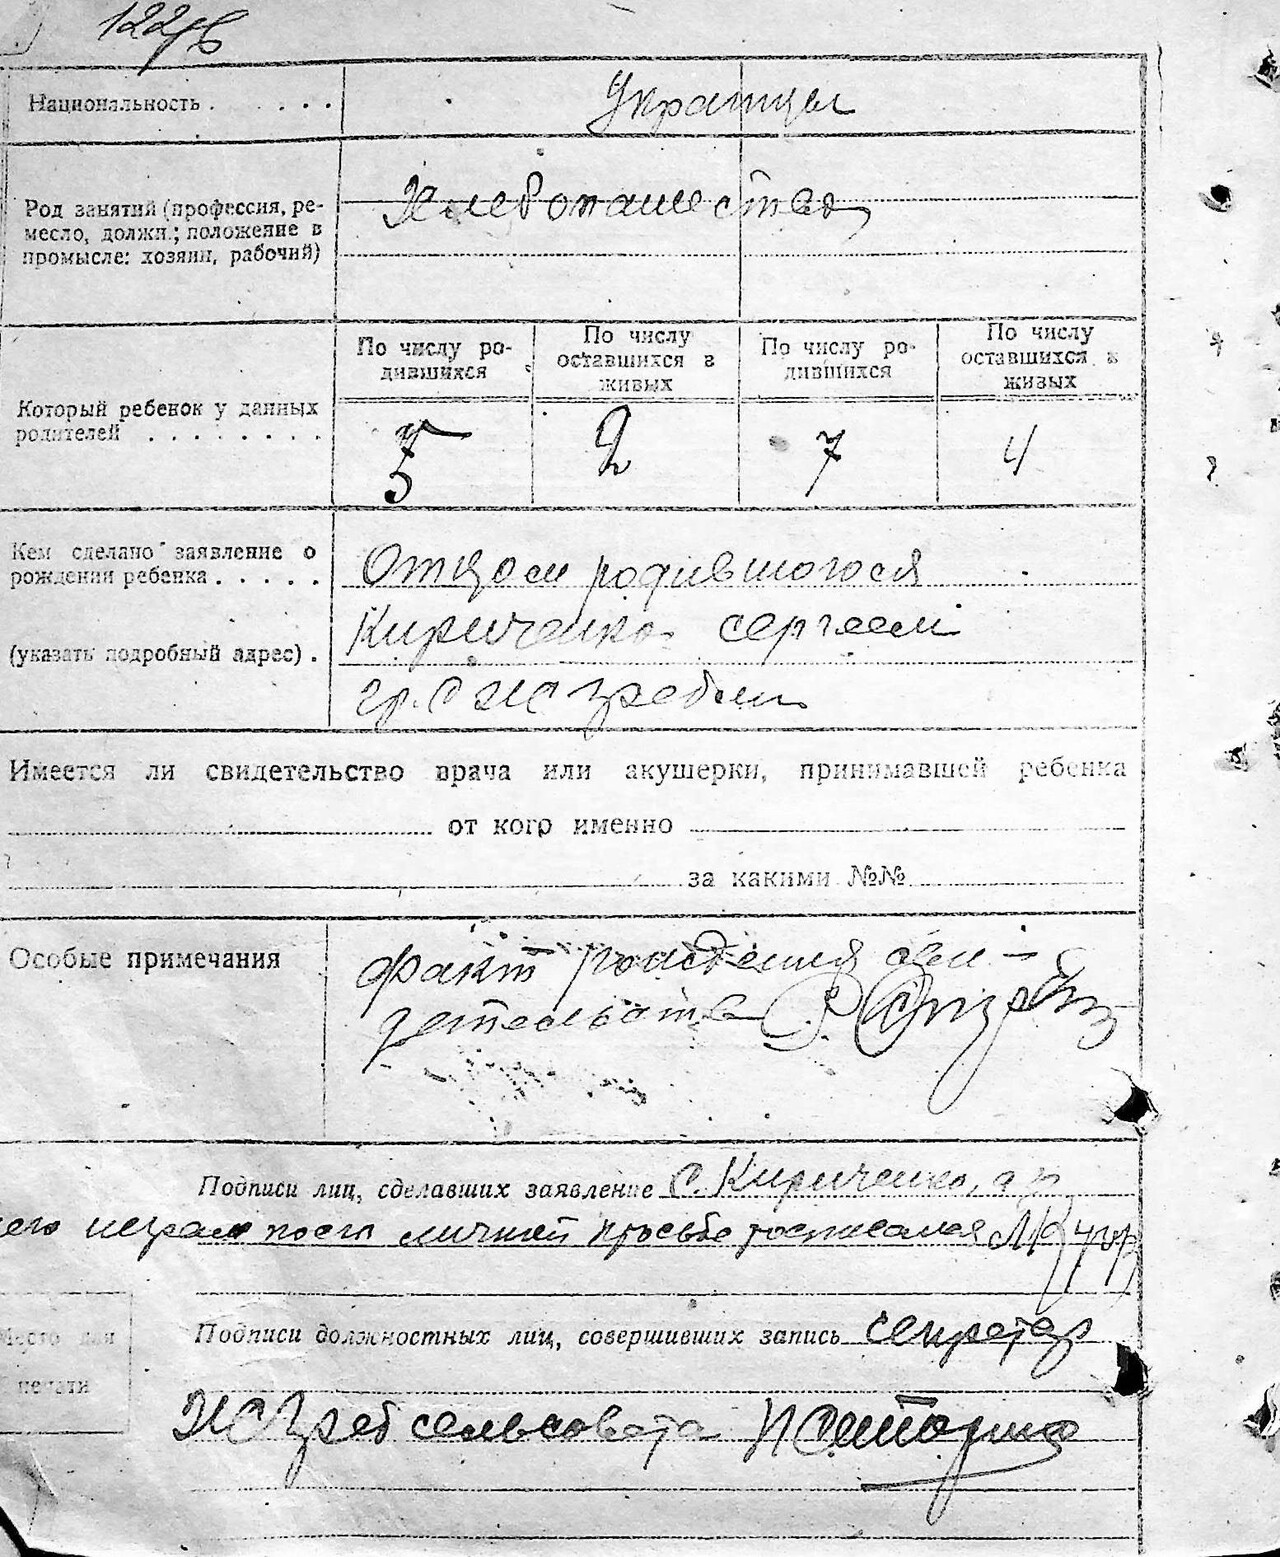 122
Национальность . . . . .
Украинцы
Род занятий (профессия, ре-
месло, должн.; положение в
промысле: хозяин, рабочий)
Хлебопашество
Который ребенок у данных
родителей . . . . . . . .
По числу ро-
дившихся
По числу
оставшихся в
живых
По числу ро-
дившихся
По числу
оставшихся в
живых
5 2 7 4
Кем сделано заявление о
рождении ребенка . . . . .
(указать подробный адрес) .
Отцом родившогося
Кириченко Сергеем
гр. с
Имеется ли свидетельство врача или акушерки, принимавшей ребенка
от кого именно
за какими №№
Особые примечания
факт рождения сви-
детельств
Подписи лиц, сделавших заявление С. Кириченко, а за
его неграмотность личной просьбе росписался
Место для
печати
Подписи должностных лиц, совершивших запись секретарь
сельсовета